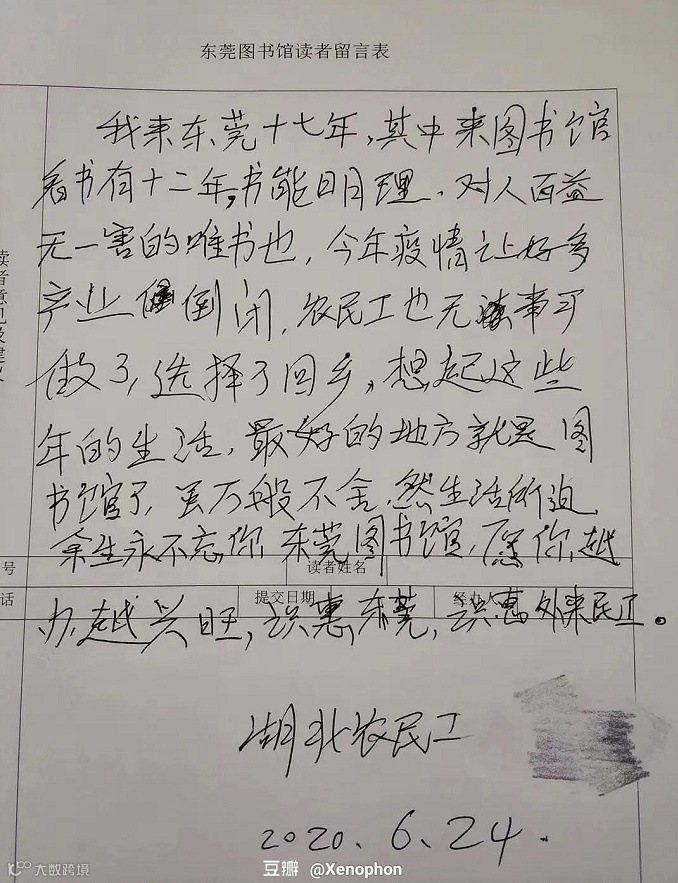 东莞图书馆读者留言表
我来东莞十七年,其中来图书馆
看书有十二年,书能明理,对人百益
无一害的唯书也,今年疫情让好多
产业倒闭,农民工也无事可
做了,选择了回乡,想起这些
年的生活,最好的地方就是图
书馆了,虽万般不舍,然生活所迫,
余生永不忘你,东莞图书馆,愿你越
办越兴旺,识惠东莞,识惠外来民工。
读者意见及建议
号
读者姓名
话
提交日期
经办人
湖北农民工
2020、6、24.
豆瓣 @Xenophon
大数跨境